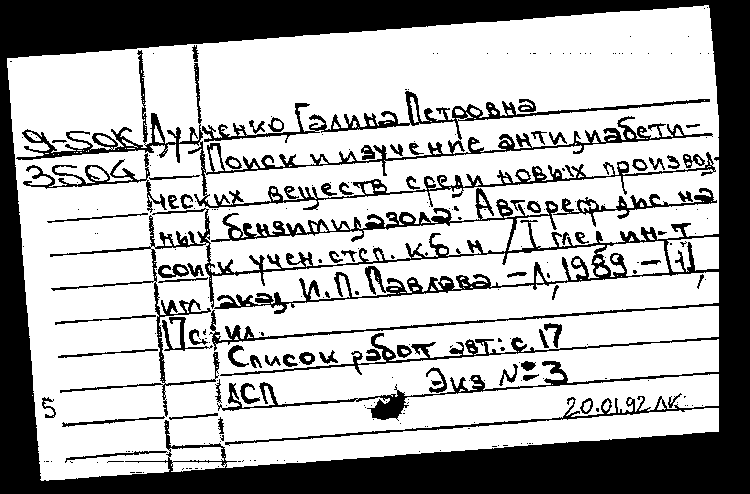 9-50К Дудченко, Галина Петровна
350G Поиск и изучение антидиабети-
ческих веществ среди новых производ-
ных бензимидазола: Автореф. дис. на
соиск. учен. степ. к.б.н. / I мед. ин-т
им. акад. И.П. Павлова. – Л., 1989. – [1],
17с.: ил.
Список работ авт.: с. 17
ДСП Экз № 3
5 20.01.92 ЛК